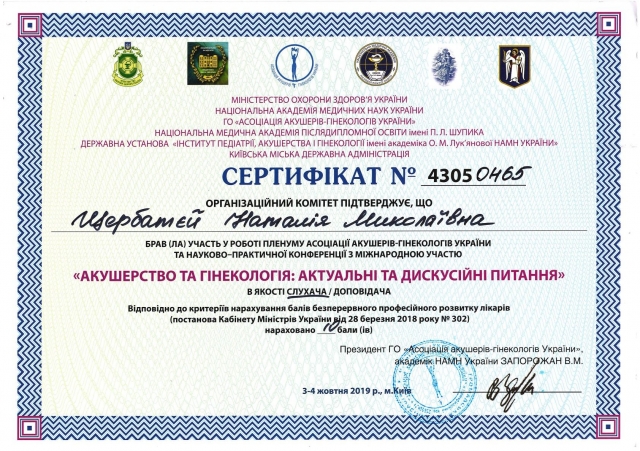 МІНІСТЕРСТВО ОХОРОНИ ЗДОРОВ'Я УКРАЇНИ
НАЦІОНАЛЬНА АКАДЕМІЯ МЕДИЧНИХ НАУК УКРАЇНИ
ГО «АСОЦІАЦІЯ АКУШЕРІВ-ГІНЕКОЛОГІВ УКРАЇНИ»
НАЦІОНАЛЬНА МЕДИЧНА АКАДЕМІЯ ПІСЛЯДИПЛОМНОЇ ОСВІТИ імені П. Л. ШУПИКА
ДЕРЖАВНА УСТАНОВА «ІНСТИТУТ ПЕДІАТРІЇ, АКУШЕРСТВА І ГІНЕКОЛОГІЇ імені академіка О. М. Лук'янової НАМН УКРАЇНИ»
КИЇВСЬКА МІСЬКА ДЕРЖАВНА АДМІНІСТРАЦІЯ
СЕРТИФІКАТ № 4305 0465
ОРГАНІЗАЦІЙНИЙ КОМІТЕТ ПІДТВЕРДЖУЄ, ЩО
Щербатєй Наталія Миколаївна
БРАВ (ЛА) УЧАСТЬ У РОБОТІ ПЛЕНУМУ АСОЦІАЦІЇ АКУШЕРІВ-ГІНЕКОЛОГІВ УКРАЇНИ
ТА НАУКОВО–ПРАКТИЧНОЇ КОНФЕРЕНЦІЇ З МІЖНАРОДНОЮ УЧАСТЮ
«АКУШЕРСТВО ТА ГІНЕКОЛОГІЯ: АКТУАЛЬНІ ТА ДИСКУСІЙНІ ПИТАННЯ»
В ЯКОСТІ СЛУХАЧА / ДОПОВІДАЧА
Відповідно до критеріїв нарахування балів безперервного професійного розвитку лікарів
(постанова Кабінету Міністрів України від 28 березня 2018 року № 302)
нараховано 10 бали (ів)
Президент ГО «Асоціація акушерів-гінекологів України»,
академік НАМН України ЗАПОРОЖАН В.М.
3-4 жовтня 2019 р., м.Київ